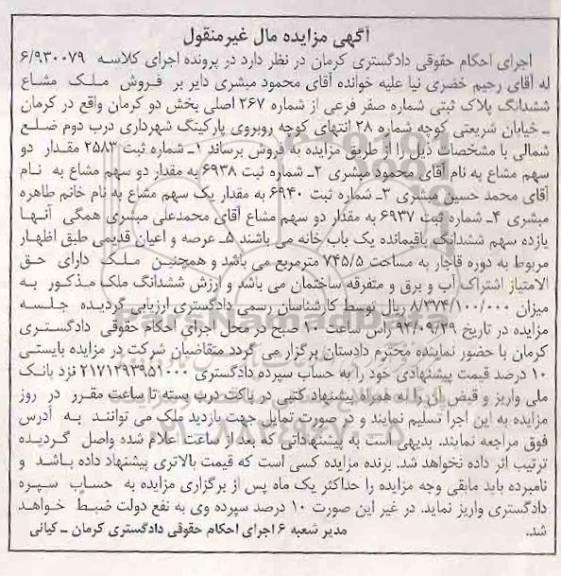 آگهی مزایده مال غیرمنقول
اجرای احکام حقوقی دادگستری کرمان در نظر دارد در پرونده اجرای کلاسه ۶/۹۳۰۰۷۹
له آقای رحیم خضری نیا علیه خوانده آقای محمود مبشری دایر بر فروش ملک مشاع
ششدانگ پلاک ثبتی شماره صفر فرعی از شماره ۲۶۷ اصلی بخش دو کرمان واقع در کرمان
ـ خیابان شریعتی کوچه شماره ۲۸ انتهای کوچه روبروی پارکینگ شهرداری درب دوم ضلع
شمالی با مشخصات ذیل را از طریق مزایده به فروش برساند ۱ـ شماره ثبت ۲۵۸۳ مقدار دو
سهم مشاع به نام آقای محمود مبشری ۲ـ شماره ثبت ۶۹۳۸ به مقدار دو سهم مشاع به نام
آقای محمد حسین مبشری ۳ـ شماره ثبت ۶۹۴۰ به مقدار یک سهم مشاع به نام خانم طاهره
مبشری ۴ـ شماره ثبت ۶۹۳۷ به مقدار دو سهم مشاع آقای محمدعلی مبشری همگی آنها
یازده سهم ششدانگ باقیمانده یک باب خانه می باشند ۵ـ عرصه و اعیان قدیمی طبق اظهار
مربوط به دوره قاجار به مساحت ۷۴۵/۵ مترمربع می باشد و همچنین ملک دارای حق
الامتیاز اشتراک آب و برق و متفرقه ساختمان می باشد و ارزش ششدانگ ملک مذکور به
میزان ۸/۳۷۴/۱۰۰/۰۰۰ ریال توسط کارشناسان رسمی دادگستری ارزیابی گردیده جلسه
مزایده در تاریخ ۹۴/۰۹/۲۹ راس ساعت ۱۰ صبح در محل اجرای احکام حقوقی دادگستری
کرمان با حضور نماینده محترم دادستان برگزار می گردد متقاضیان شرکت در مزایده بایستی
۱۰ درصد قیمت پیشنهادی خود را به حساب سپرده دادگستری ۲۱۷۱۲۹۳۹۵۱۰۰۰ نزد بانک
ملی واریز و قبض آن را به همراه پیشنهاد کتبی در پاکت درب بسته تا ساعت مقرر در روز
مزایده به این اجرا تسلیم نمایند و در صورت تمایل جهت بازدید ملک می توانند به آدرس
فوق مراجعه نمایند. بدیهی است به پیشنهاداتی که بعد از ساعت اعلام شده واصل گردیده
ترتیب اثر داده نخواهد شد. برنده مزایده کسی است که قیمت بالاتری پیشنهاد داده باشد و
نامبرده باید مابقی وجه مزایده را حداکثر یک ماه پس از برگزاری مزایده به حساب سپره
دادگستری واریز نماید. در غیر این صورت ۱۰ درصد سپرده وی به نفع دولت ضبط خواهد
شد.
مدیر شعبه ۶ اجرای احکام حقوقی دادگستری کرمان ـ کیانی